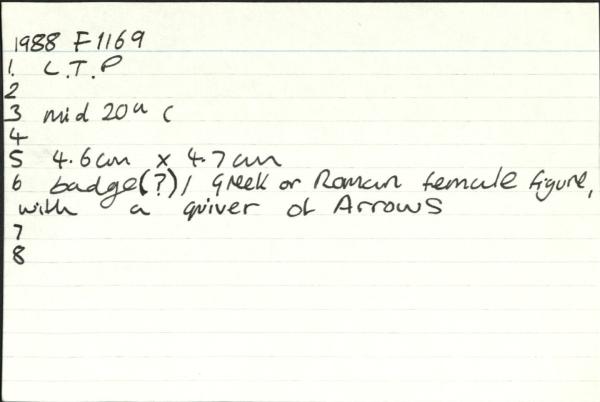 1988 F1169
1. L.T.P
2
3 mid 20th C
4
5 4.6cm x 4.7cm
6 badge(?)/ Greek or Roman female figure,
with a quiver of Arrows
7
8